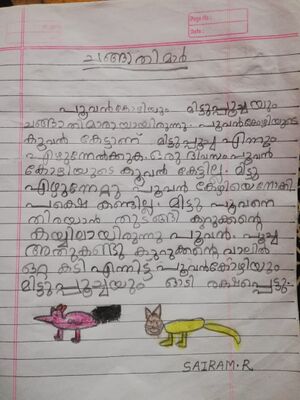 Page No.:
Date:
ചങ്ങാതിമാർ
പൂവൻകോഴിയും മിട്ടുപൂച്ചയും
ചങ്ങാതിമാരായായിരുന്നു. പൂവൻകോഴിയുടെ
കൂവൽ കേട്ടാണ് മിട്ടുപൂച്ച എന്നും
എഴുന്നേൽക്കുക. ഒരു ദിവസം പൂവൻ
കോഴിയുടെ കൂവൽ കേട്ടില്ല. മിട്ടു
എഴുന്നേറ്റു പൂവൻ കോഴിയെനോക്കി
പക്ഷെ കണ്ടില്ല. മിട്ടു പൂവനെ
തിരയാൻ തുടങ്ങി കുറുക്കന്റെ
കയ്യിലായിരുന്നു പൂവൻ. പൂച്ച
അതുകണ്ടു കുറുക്കന്റെ വാലിൽ
ഒറ്റ കടി എന്നിട്ട് പൂവൻകോഴിയും
മിട്ടുപൂച്ചയും ഓടി രക്ഷപ്പെട്ടു.
SAIRAM.R